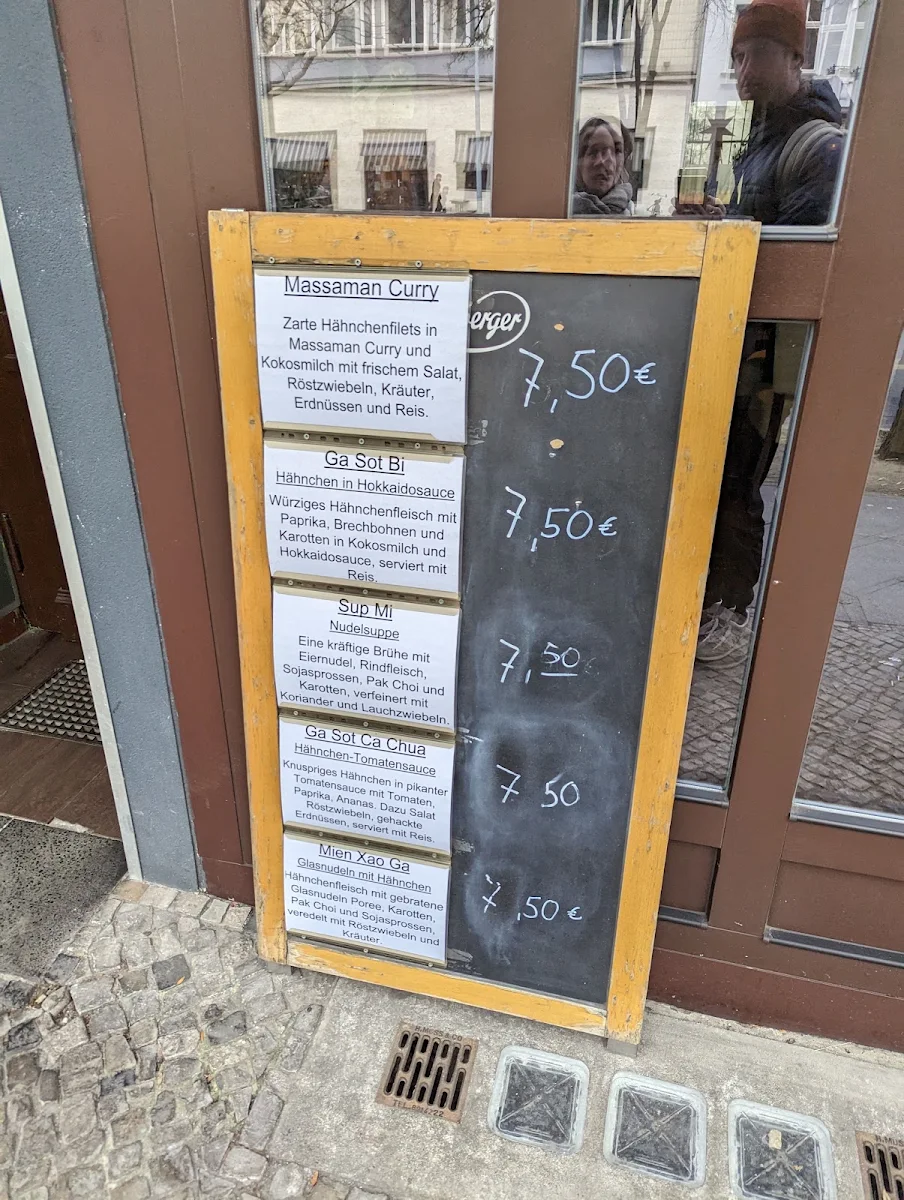 Massaman Curry
Zarte Hähnchenfilets in
Massaman Curry und
Kokosmilch mit frischem Salat,
Röstzwiebeln, Kräuter,
Erdnüssen und Reis.
erger
7,50€
Ga Sot Bi
Hähnchen in Hokkaidosauce
Würziges Hähnchenfleisch mit
Paprika, Brechbohnen und
Karotten in Kokosmilch und
Hokkaidosauce, serviert mit
Reis.
7,50€
Sup Mi
Nudelsuppe
Eine kräftige Brühe mit
Eiernudel, Rindfleisch,
Sojasprossen, Pak Choi und
Karotten, verfeinert mit
Koriander und Lauchzwiebeln.
7,50
Ga Sot Ca Chua
Hähnchen-Tomatensauce
Knuspriges Hähnchen in pikanter
Tomatensauce mit Tomaten,
Paprika, Ananas. Dazu Salat
Röstzwiebeln, gehackte
Erdnüssen, serviert mit Reis.
7 50
Mien Xao Ga
Glasnudeln mit Hähnchen
Hähnchenfleisch mit gebratene
Glasnudeln Poree, Karotten,
Pak Choi und Sojasprossen,
veredelt mit Röstzwiebeln und
Kräuter.
7,50€